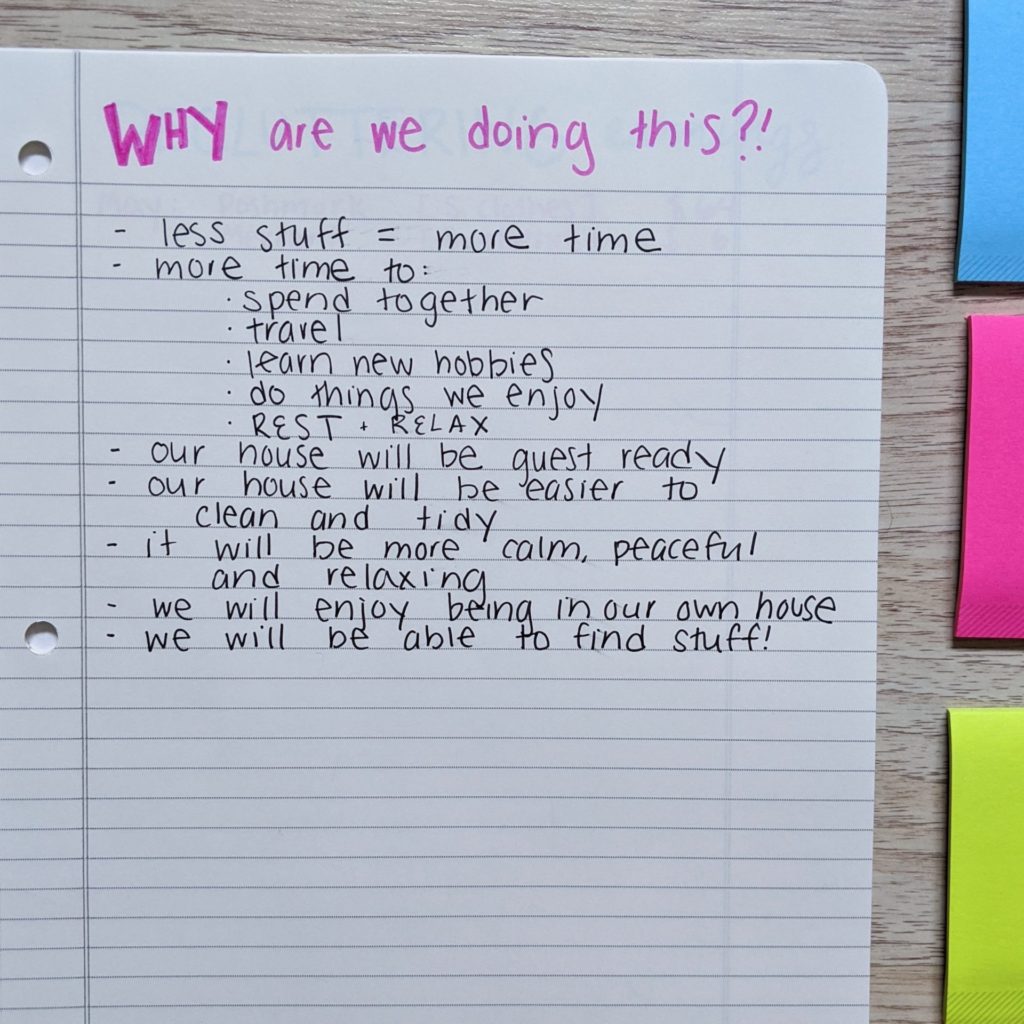 WHY are we doing this?!
- less stuff = more time
- more time to:
· spend together
· travel
· learn new hobbies
· do things we enjoy
· REST + RELAX
- our house will be guest ready
- our house will be easier to
clean and tidy
- it will be more calm, peaceful
and relaxing
- we will enjoy being in our own house
- we will be able to find stuff!